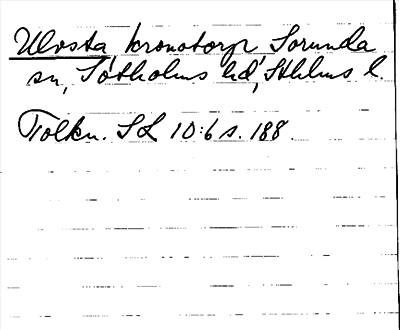 Ulvsta kronotorp Sorunda
sn, Sotholms hd, Sthlms l.
Tolkn. SL 10:6 s. 188.